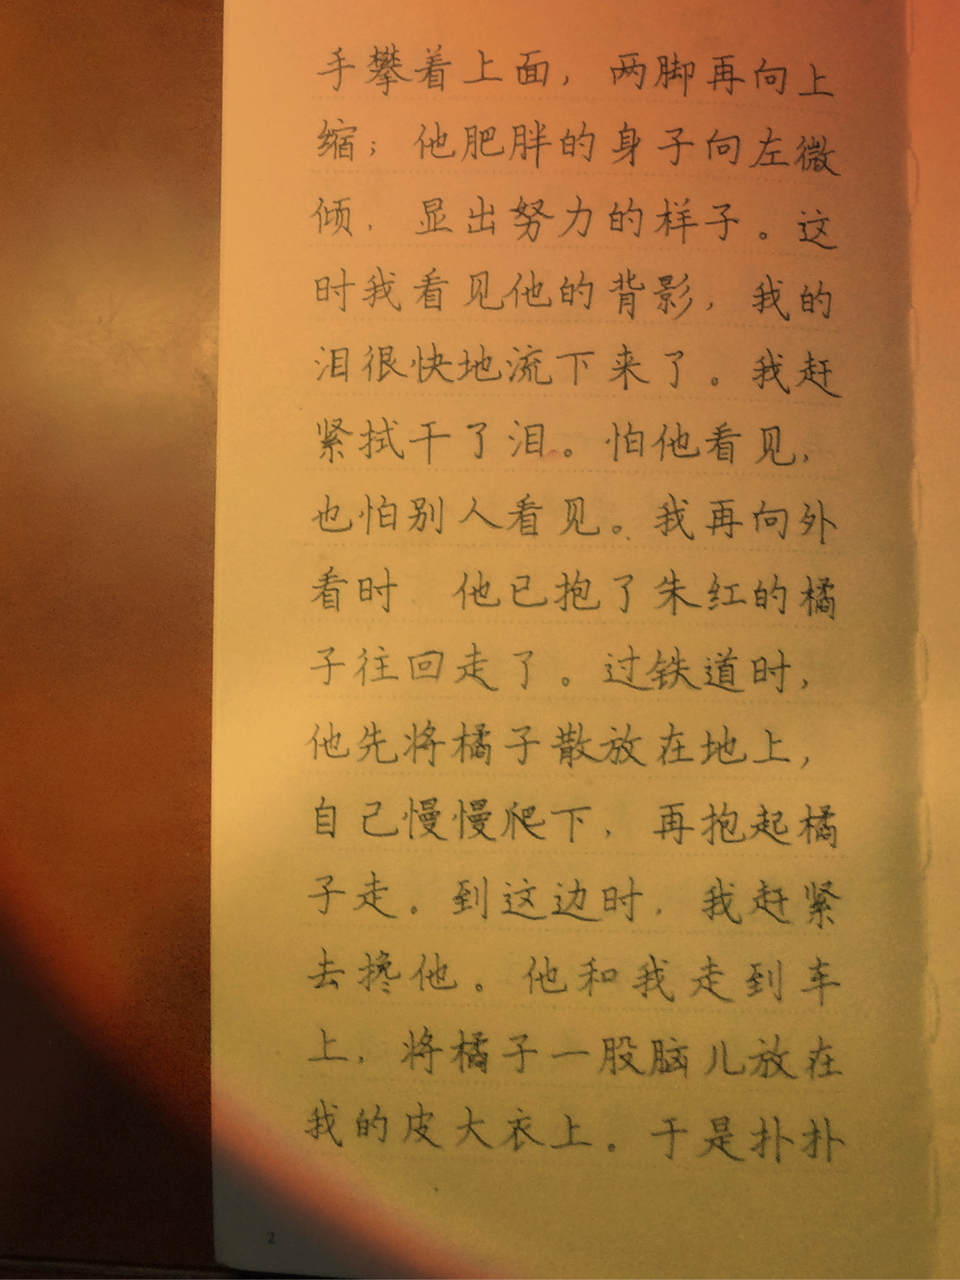 手攀着上面，两脚再向上
缩；他肥胖的身子向左微
倾，显出努力的样子。这
时我看见他的背影，我的
泪很快地流下来了。我赶
紧拭干了泪。怕他看见，
也怕别人看见。我再向外
看时 他已抱了朱红的橘
子往回走了。过铁道时，
他先将橘子散放在地上，
自己慢慢爬下，再抱起橘
子走。到这边时，我赶紧
去搀他。他和我走到车
上，将橘子一股脑儿放在
我的皮大衣上。于是扑扑
2